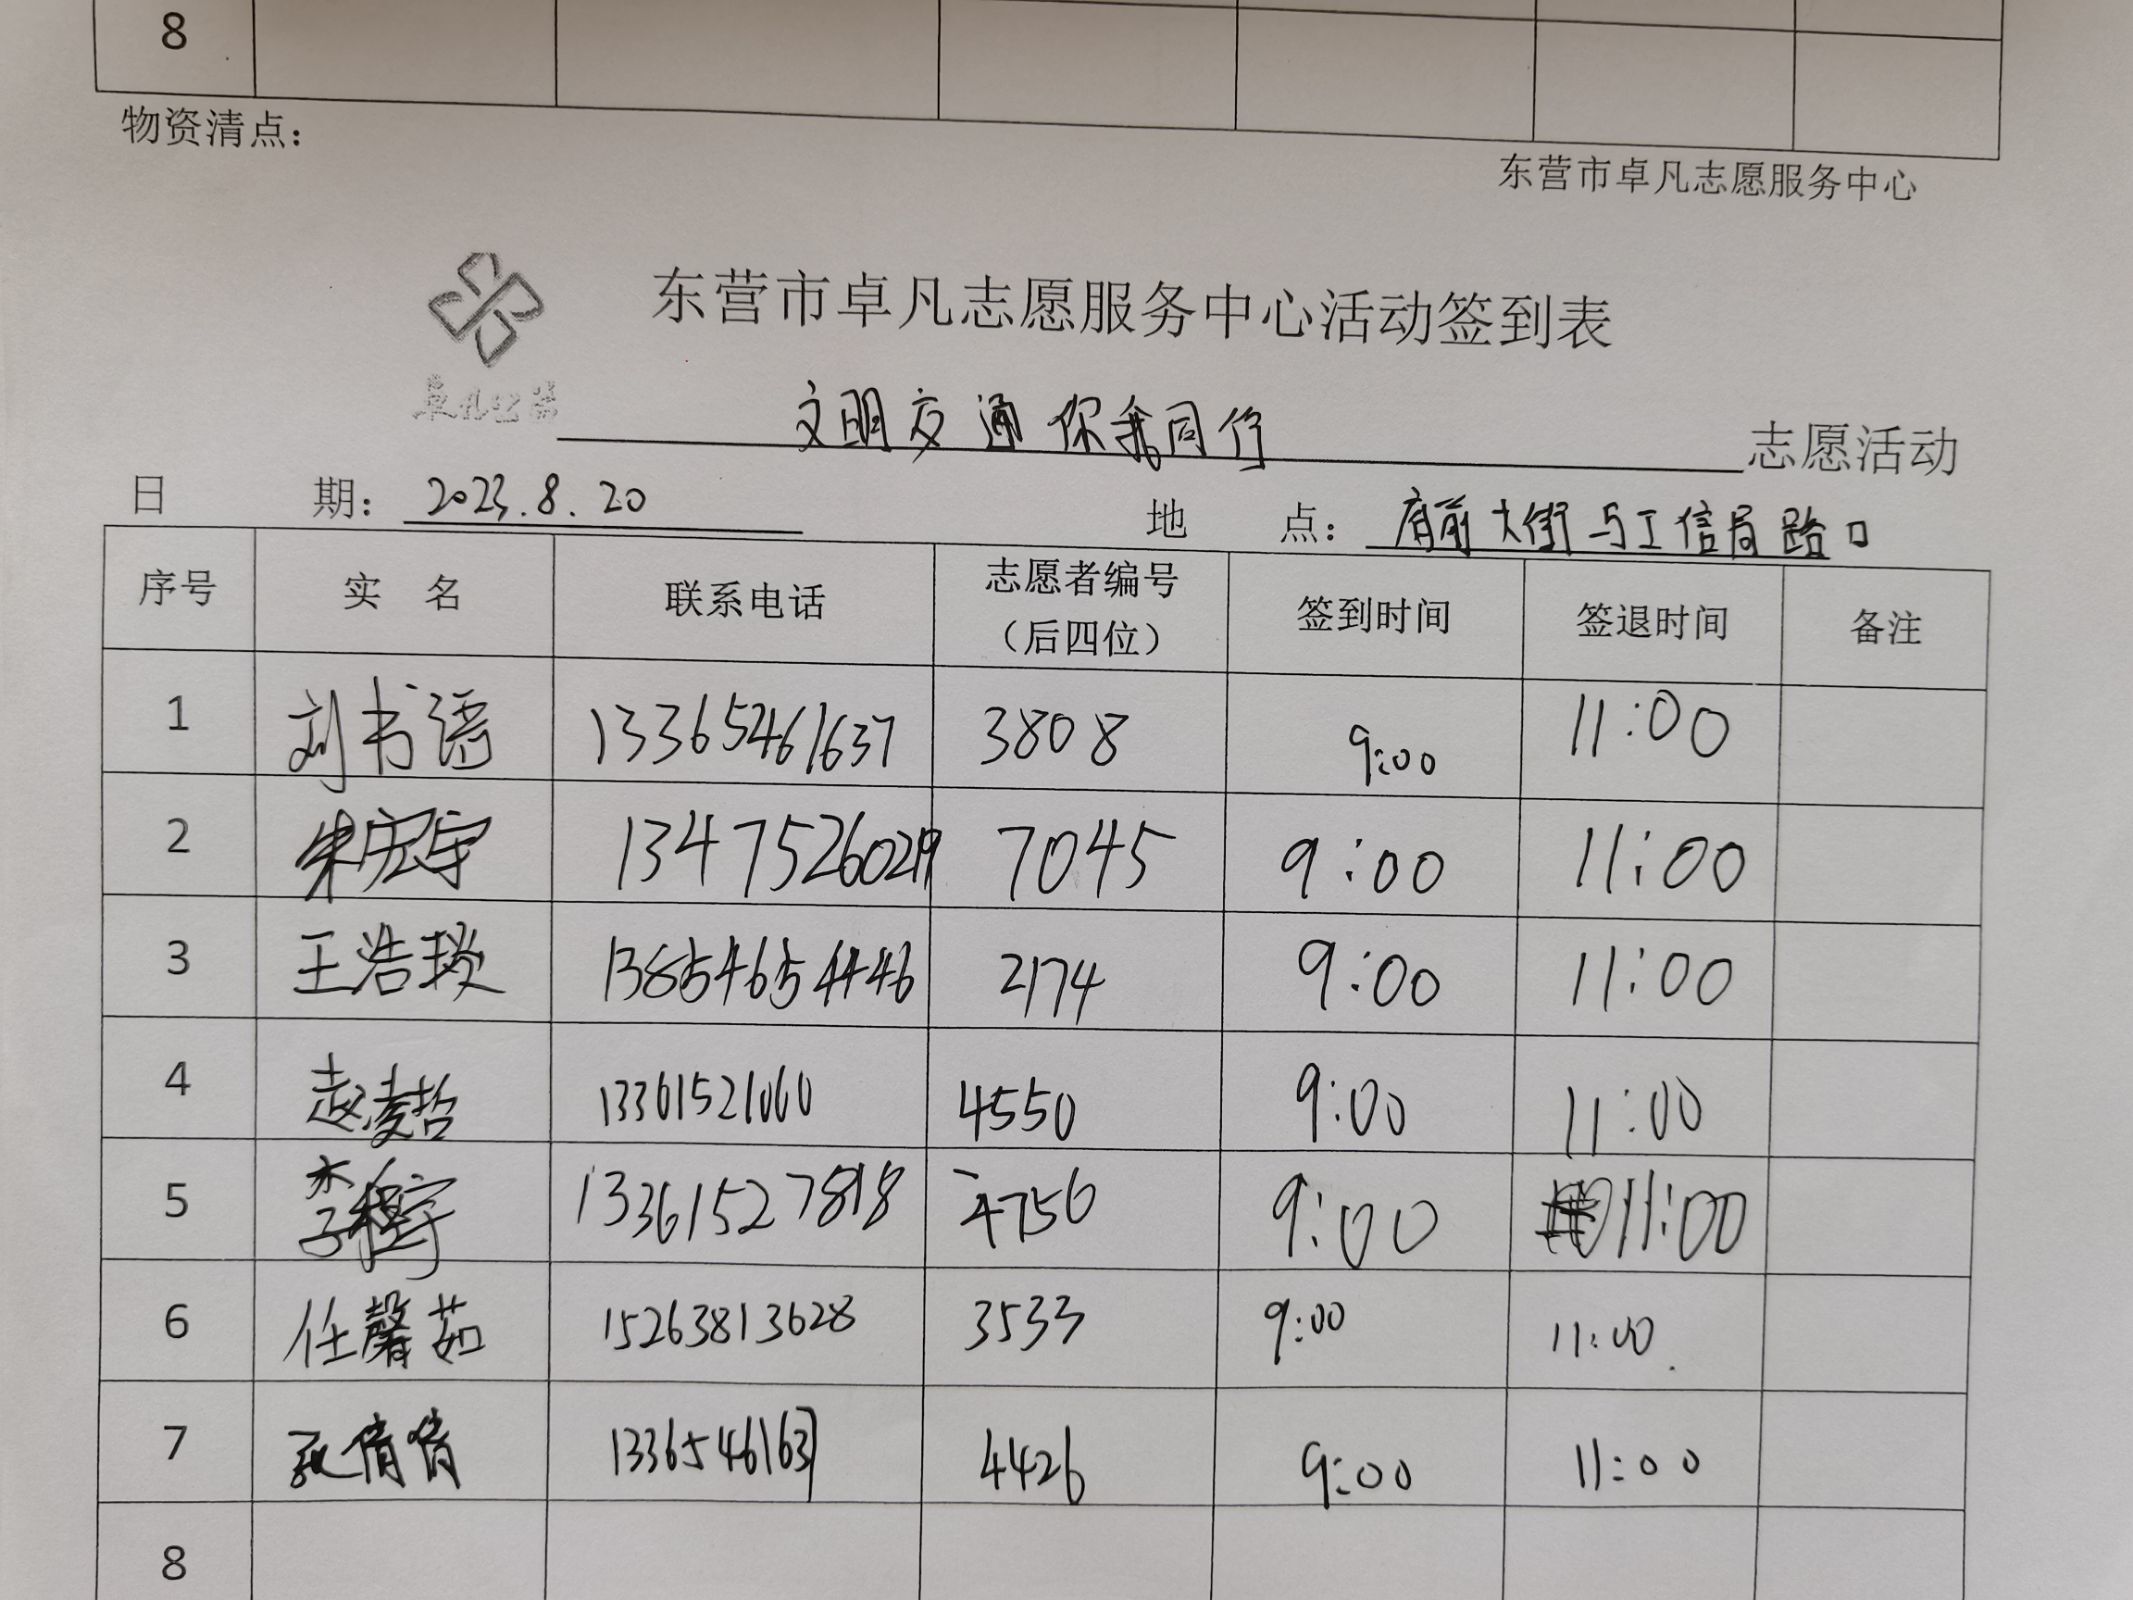 8
物资清点：
东营市卓凡志愿服务中心
东营市卓凡志愿服务中心活动签到表
卓凡公益
文明交通 你我同行 志愿活动
日 期： 2023.8.20 地 点： 府前大街与工信局路口
序号 实 名 联系电话 志愿者编号（后四位） 签到时间 签退时间 备注
1 刘书语 13365461637 3808 9:00 11:00
2 朱宏宇 7045 9:00 11:00
3 王浩琰 13854654446 2174 9:00 11:00
4 赵凌哲 13361521060 4550 9:00 11:00
5 李 13361527818 4756 9:00 11:00
6 任馨茹 15263813628 3533 9:00 11:00
7 倩倩 13365461637 4426 9:00 11:00
8